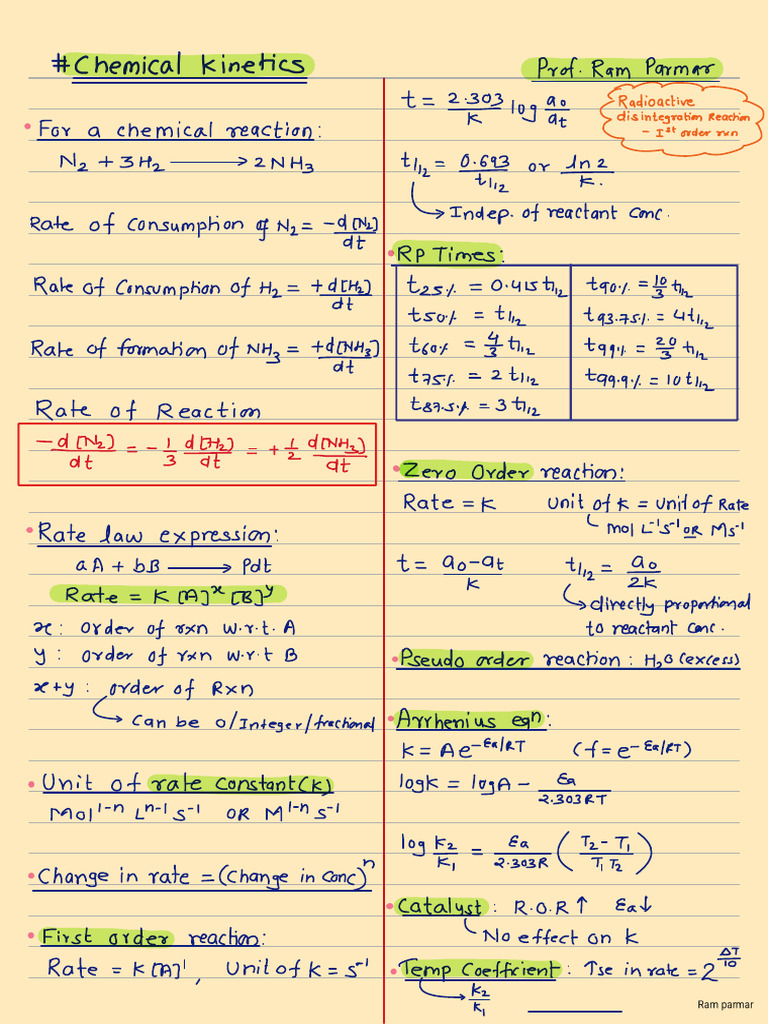 # Chemical Kinetics
Prof. Ram Parmar
• For a chemical reaction:
N₂ + 3H₂ ⟶ 2NH₃
Rate of Consumption of N₂ = -d[N₂]/dt
Rate of Consumption of H₂ = +d[H₂]/dt
Rate of formation of NH₃ = +d[NH₃]/dt
Rate of Reaction
-d[N₂]/dt = -1/3 d[H₂]/dt = +1/2 d[NH₃]/dt
• Rate law expression:
aA + bB ⟶ Pdt
Rate = K[A]ˣ[B]ʸ
x: order of rxn w.r.t. A
y: order of rxn w.r.t B
x+y: order of Rxn
↳ Can be 0/Integer/fractional
• Unit of rate constant(k)
Mol¹⁻ⁿ Lⁿ⁻¹ S⁻¹ OR M¹⁻ⁿ S⁻¹
• Change in rate = (Change in Conc)ⁿ
• First order reaction:
Rate = K[A]¹, Unit of K = S⁻¹
t = 2.303/K log a₀/at
Radioactive
disintegration Reaction
- Iˢᵗ order rxn
t1/2 = 0.693/t1/2 or ln2/K.
↳ Indep. of reactant conc.
• Rp Times:
t25% = 0.415t1/2
t50% = t1/2
t60% = 4/3 t1/2
t75% = 2 t1/2
t87.5% = 3 t1/2
t90% = 10/3 t1/2
t93.75% = 4t1/2
t99% = 20/3 t1/2
t99.9% = 10t1/2
• Zero Order reaction:
Rate = K Unit of K = Unit of Rate
mol L⁻¹S⁻¹ OR MS⁻¹
t = a₀-at/K t1/2 = a₀/2K
↳ directly proportional
to reactant conc.
• Pseudo order reaction: H₂O (excess)
• Arrhenius eqⁿ:
K = Ae^-Ea/RT (f = e^-Ea/RT)
logK = logA - Ea/2.303RT
log K₂/K₁ = Ea/2.303R (T₂-T₁/T₁T₂)
• Catalyst: R.O.R ↑ Ea↓
No effect on K
• Temp Coefficient: ↑se in rate = 2^ΔT/10
→ K₂/K₁
Ram parmar